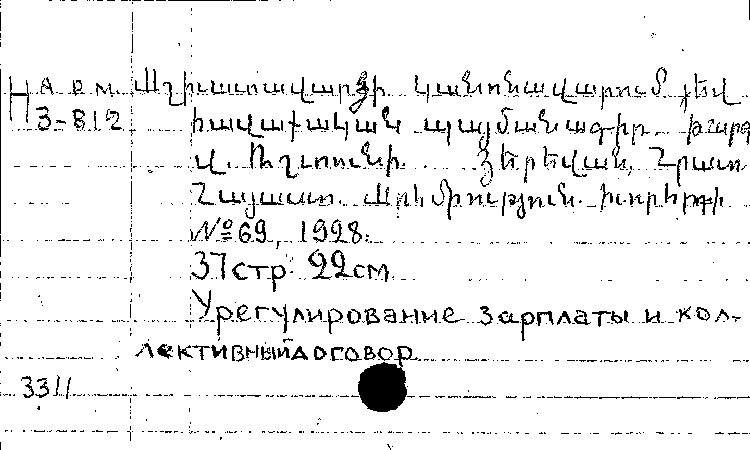 Н АРМ Աշխատավարձի կանոնավարում յեվ
3-812 հավաքական պայմանագիր. թարգ
Վ. Ռշտունի. Յերեվան, Հրատ
Հայաստ. Արհմիություն. խորհրդի
№ 69, 1928.
37 стр. 22 см
Урегулирование зарплаты и кол-
лективный договор
3311